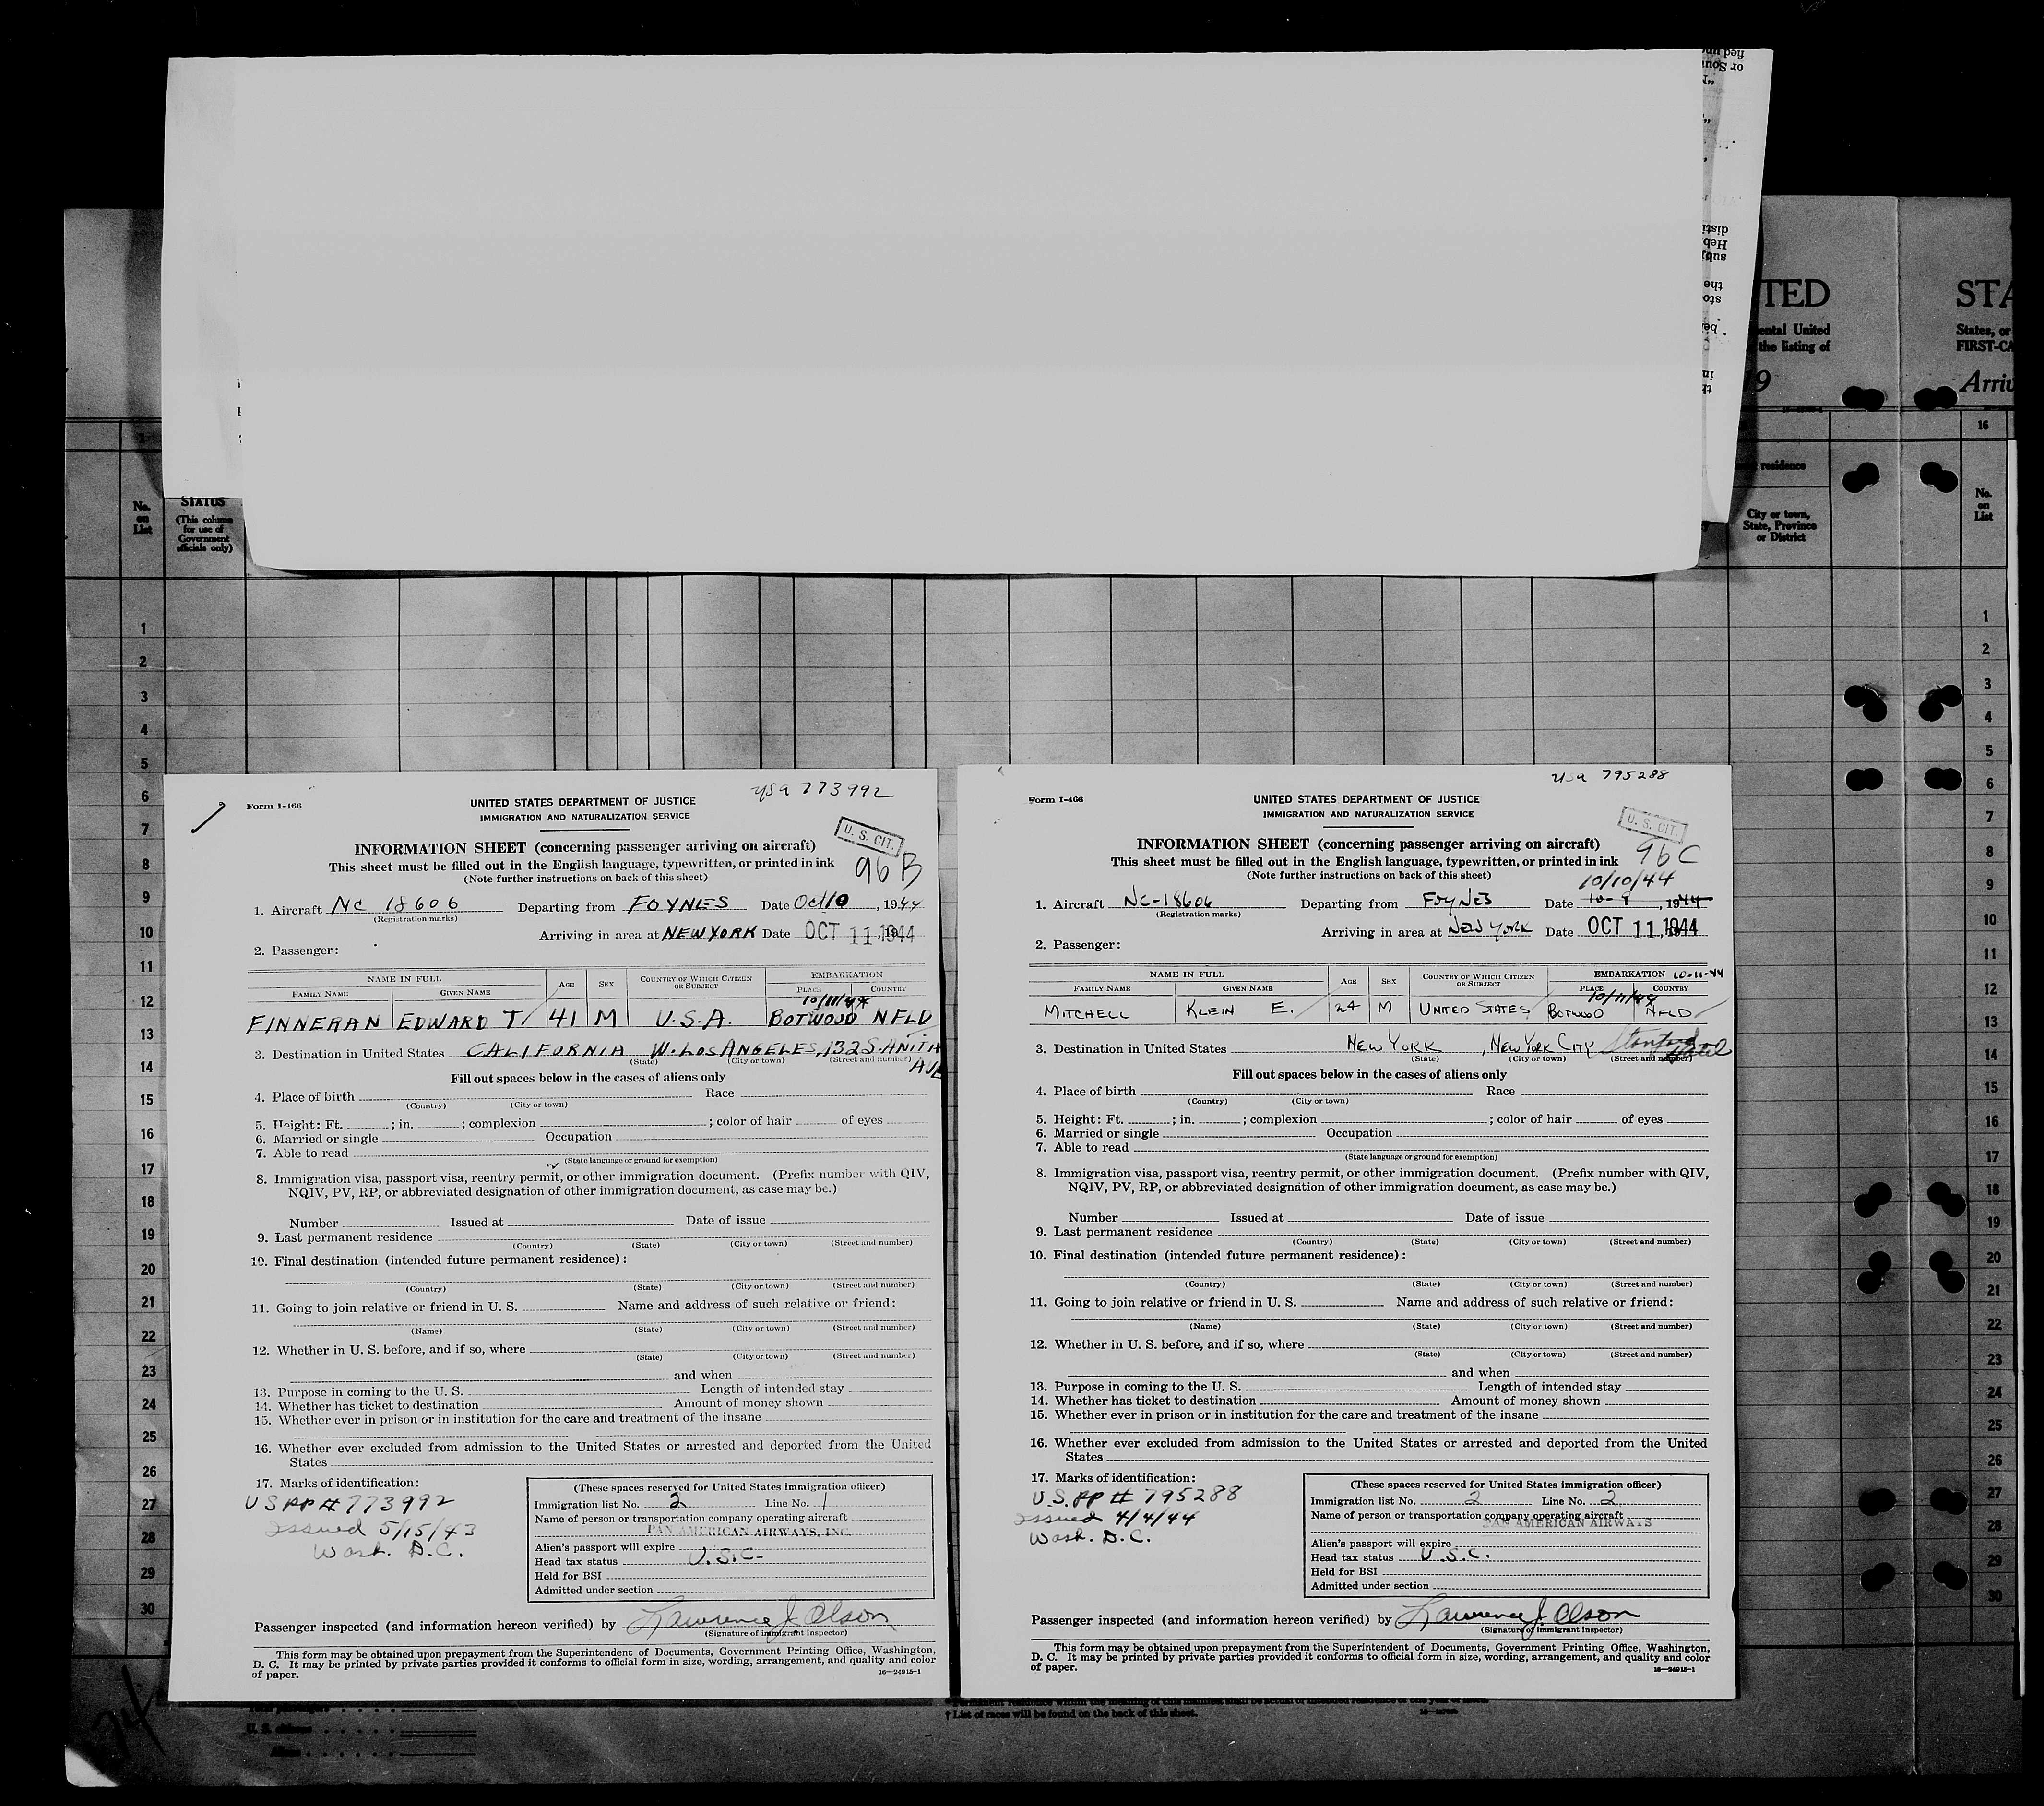 TED
STA
ental United
the listing of
States, or
FIRST-CA
19
Arriv
16
residence
No.
on
List
STATUS
(This column
for use of
Government
officials only)
City or town,
State, Province
or District
No.
on
List
1
2
3
4
5
6
7
8
9
10
11
12
13
14
15
16
17
18
19
20
21
22
23
24
25
26
27
28
29
30
USA 773992
Form I-466
UNITED STATES DEPARTMENT OF JUSTICE
IMMIGRATION AND NATURALIZATION SERVICE
U. S. CIT.
INFORMATION SHEET (concerning passenger arriving on aircraft)
This sheet must be filled out in the English language, typewritten, or printed in ink
96 B
(Note further instructions on back of this sheet)
1. Aircraft NC 18606 Departing from FOYNES Date Oct 10, 1944
(Registration marks)
Arriving in area at NEW YORK Date OCT 11 1944
2. Passenger:
NAME IN FULL AGE SEX COUNTRY OF WHICH CITIZEN OR SUBJECT EMBARKATION
FAMILY NAME GIVEN NAME PLACE COUNTRY
10/11/44
FINNERAN EDWARD T 41 M U.S.A. BOTWOOD NFLD
3. Destination in United States CALIFORNIA W. LOS ANGELES, 132 S. ANITA
(State) (City or town) (Street and number)
AVE
Fill out spaces below in the cases of aliens only
4. Place of birth Race
(Country) (City or town)
5. Height: Ft. ; in. ; complexion ; color of hair of eyes
6. Married or single Occupation
7. Able to read
(State language or ground for exemption)
8. Immigration visa, passport visa, reentry permit, or other immigration document. (Prefix number with QIV,
NQIV, PV, RP, or abbreviated designation of other immigration document, as case may be.)
Number Issued at Date of issue
9. Last permanent residence
(Country) (State) (City or town) (Street and number)
10. Final destination (intended future permanent residence):
(Country) (State) (City or town) (Street and number)
11. Going to join relative or friend in U. S. Name and address of such relative or friend:
(Name) (State) (City or town) (Street and number)
12. Whether in U. S. before, and if so, where
(State) (City or town) (Street and number)
and when
13. Purpose in coming to the U. S. Length of intended stay
14. Whether has ticket to destination Amount of money shown
15. Whether ever in prison or in institution for the care and treatment of the insane
16. Whether ever excluded from admission to the United States or arrested and deported from the United
States
17. Marks of identification:
US PP # 773992
Issued 5/15/43
Wash. D.C.
(These spaces reserved for United States immigration officer)
Immigration list No. 2 Line No. 1
Name of person or transportation company operating aircraft
PAN AMERICAN AIRWAYS, INC.
Alien's passport will expire
Head tax status U.S.C.
Held for BSI
Admitted under section
Passenger inspected (and information hereon verified) by Lawrence J. Olson
(Signature of immigrant inspector)
This form may be obtained upon prepayment from the Superintendent of Documents, Government Printing Office, Washington,
D. C. It may be printed by private parties provided it conforms to official form in size, wording, arrangement, and quality and color
of paper.
16—24915-1
USA 795288
Form I-466
UNITED STATES DEPARTMENT OF JUSTICE
IMMIGRATION AND NATURALIZATION SERVICE
U. S. CIT.
INFORMATION SHEET (concerning passenger arriving on aircraft)
This sheet must be filled out in the English language, typewritten, or printed in ink
96 C
(Note further instructions on back of this sheet)
10/10/44
1. Aircraft NC-18606 Departing from FOYNES Date 10-9, 1944
(Registration marks)
Arriving in area at NEW YORK Date OCT 11 1944
2. Passenger:
NAME IN FULL AGE SEX COUNTRY OF WHICH CITIZEN OR SUBJECT EMBARKATION 10-11-44
FAMILY NAME GIVEN NAME PLACE COUNTRY
10/11/44
MITCHELL KLEIN E. 24 M UNITED STATES BOTWOOD NFLD
3. Destination in United States NEW YORK, NEW YORK CITY Hotel
(State) (City or town) (Street and number)
Fill out spaces below in the cases of aliens only
4. Place of birth Race
(Country) (City or town)
5. Height: Ft. ; in. ; complexion ; color of hair of eyes
6. Married or single Occupation
7. Able to read
(State language or ground for exemption)
8. Immigration visa, passport visa, reentry permit, or other immigration document. (Prefix number with QIV,
NQIV, PV, RP, or abbreviated designation of other immigration document, as case may be.)
Number Issued at Date of issue
9. Last permanent residence
(Country) (State) (City or town) (Street and number)
10. Final destination (intended future permanent residence):
(Country) (State) (City or town) (Street and number)
11. Going to join relative or friend in U. S. Name and address of such relative or friend:
(Name) (State) (City or town) (Street and number)
12. Whether in U. S. before, and if so, where
(State) (City or town) (Street and number)
and when
13. Purpose in coming to the U. S. Length of intended stay
14. Whether has ticket to destination Amount of money shown
15. Whether ever in prison or in institution for the care and treatment of the insane
16. Whether ever excluded from admission to the United States or arrested and deported from the United
States
17. Marks of identification:
U.S. PP # 795288
Issued 4/4/44
Wash. D.C.
(These spaces reserved for United States immigration officer)
Immigration list No. 2 Line No. 2
Name of person or transportation company operating aircraft
PAN AMERICAN AIRWAYS
Alien's passport will expire
Head tax status U.S.C.
Held for BSI
Admitted under section
Passenger inspected (and information hereon verified) by Lawrence J. Olson
(Signature of immigrant inspector)
This form may be obtained upon prepayment from the Superintendent of Documents, Government Printing Office, Washington,
D. C. It may be printed by private parties provided it conforms to official form in size, wording, arrangement, and quality and color
of paper.
16—24915-1
1
2
3
4
5
6
7
8
9
10
11
12
13
14
15
16
17
18
19
20
21
22
23
24
25
26
27
28
29
30
† List of races will be found on the back of this sheet.
U. S. citizens
Aliens